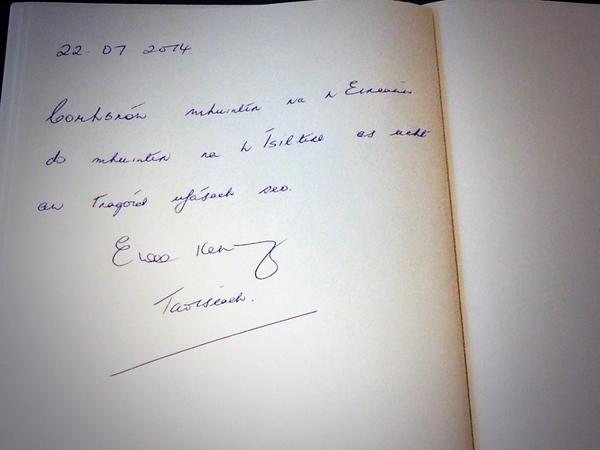 22 07 2014
Comhbrón mhuintir na h Eireann
do mhuintir na h Ísiltíre as ucht
an Tragóid uafásach seo.
Enda Kenny
Taoiseach.